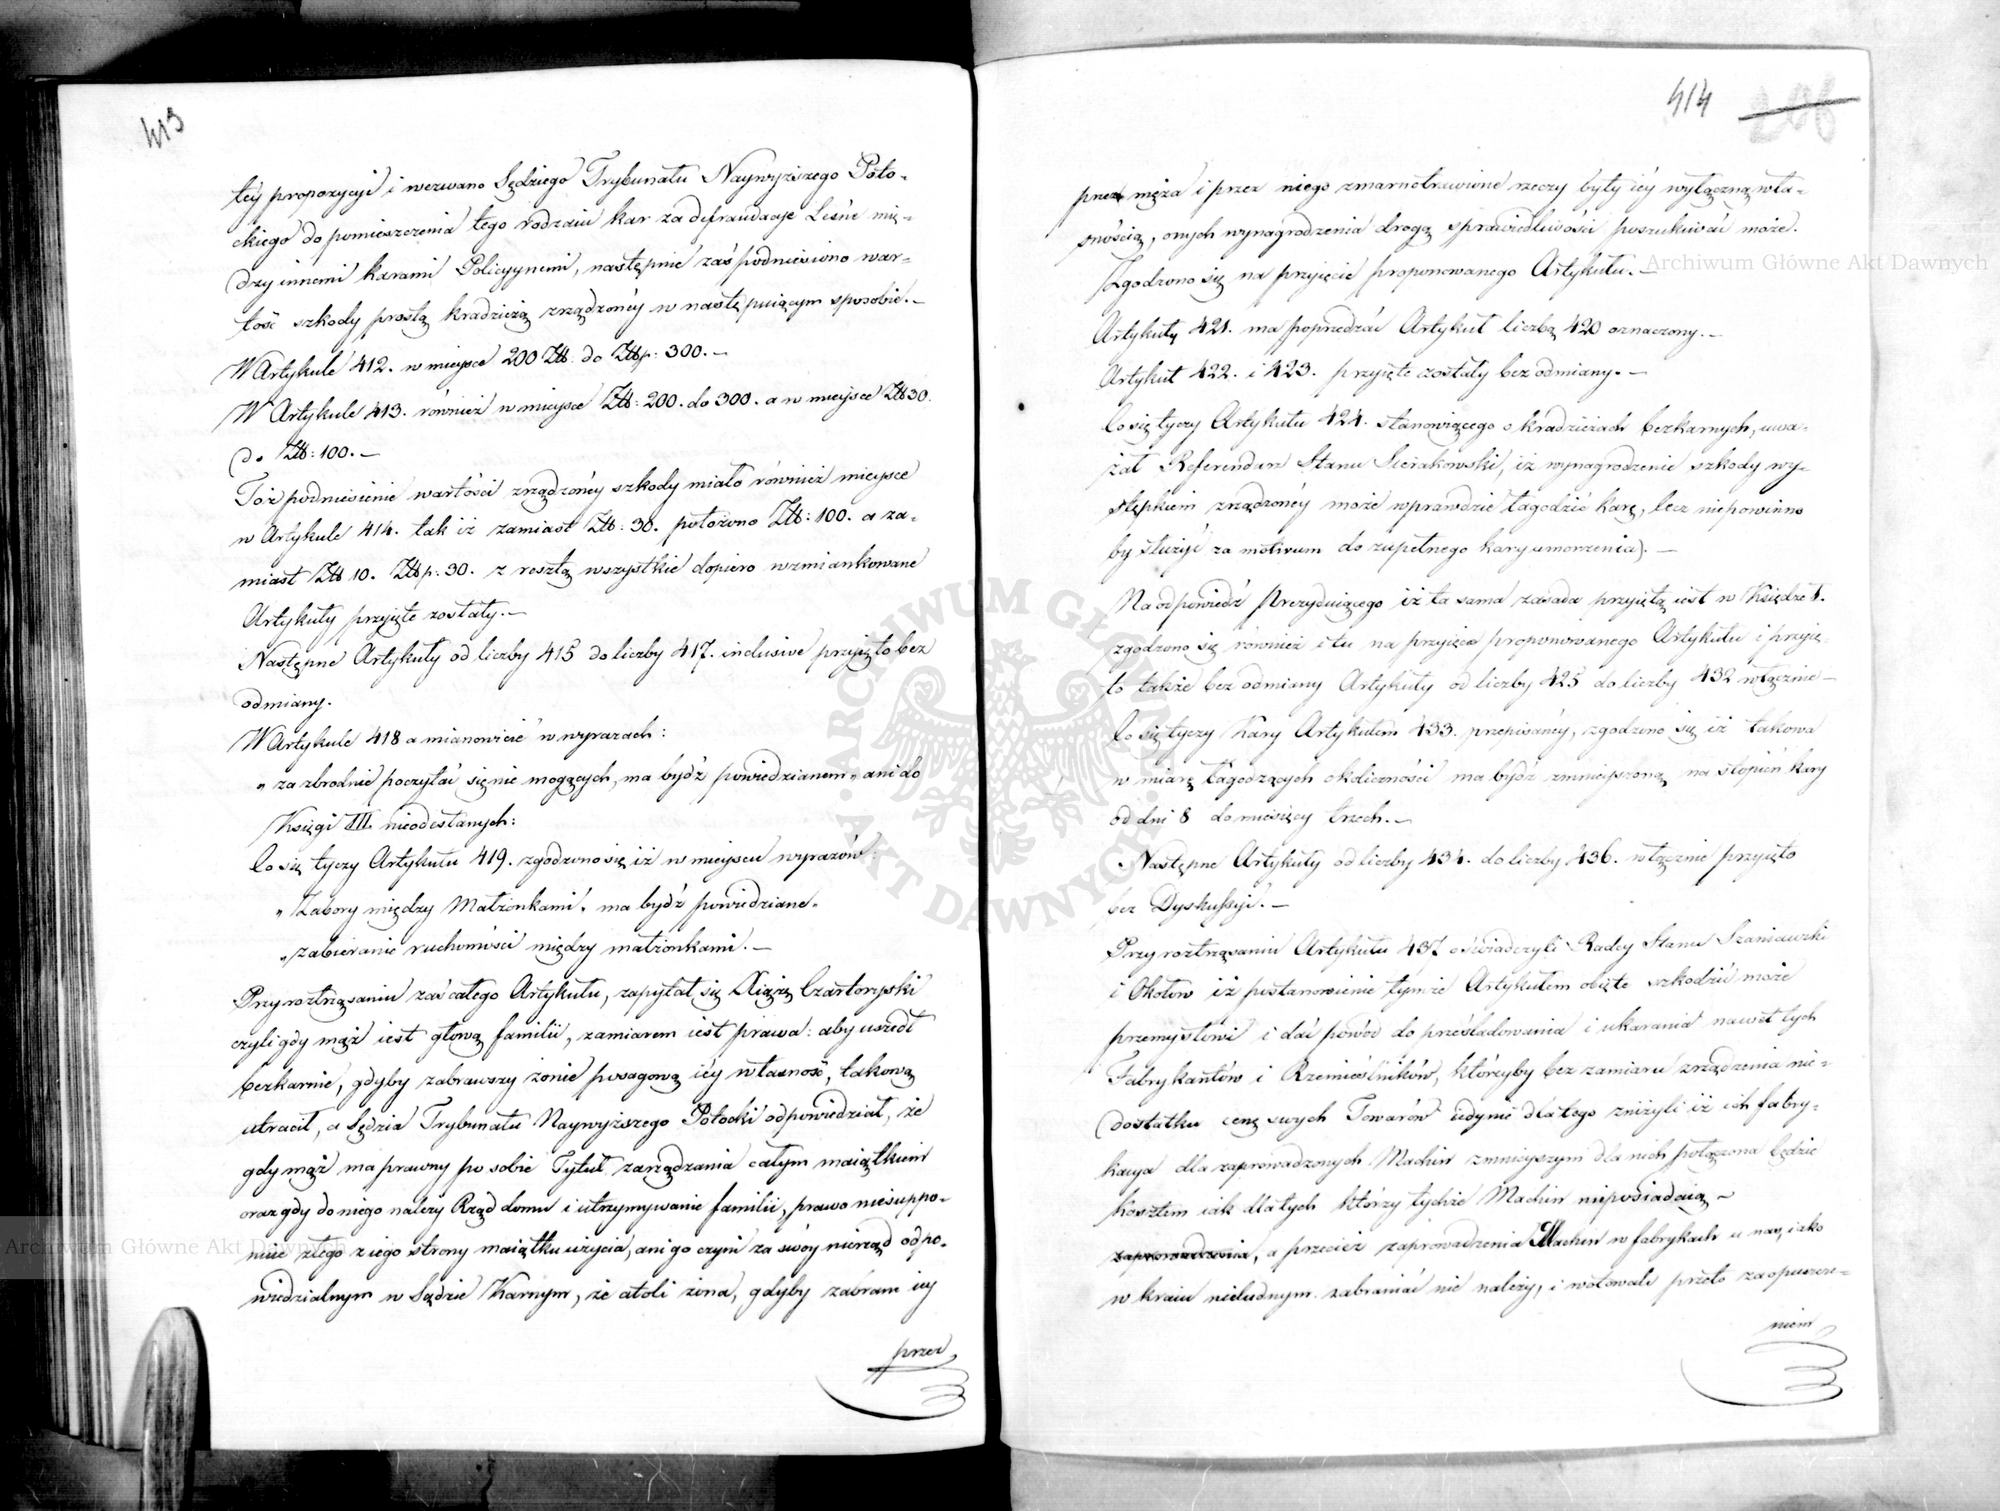 413
téy propozycyi i wezwano Sędziego Trybunału Naywyższego Poto-
ckiego do pomieszczenia tego rodzaiu kar za defraudacje Leśne mię-
dzy innemi karami Policyynemi, następnie zaś podniesiono war-
tość szkody prostą kradzieżą zrządzonéy w następuiącym sposobie.—
W Artykule 412. w mieysce 200 Zł. do Złp: 300.—
W Artykule 413. również w mieysce Zł: 200. do 300. a w mieysce Zł 30.
do Zł: 100.—
Toż podniesienie wartości zrządzonéy szkody miało również mieysce
w Artykule 414. tak iż zamiast Zł: 30. położono Zł: 100. a za-
miast Zł 10. Złp: 30. z resztą wszystkie dopiero wzmiankowane
Artykuły przyięte zostały.—
Następne Artykuły od liczby 415 do liczby 417. inclusive przyięto bez
odmiany.
W Artykule 418 a mianowicie w wyrazach:
„ za zbrodnie poczytać się nie mogących, ma bydź powiedzianem „ ani do
Księgi III. nieodesłanych:
Co się tyczy Artykułu 419. zgodzono się iż w mieyscu wyrazów:
„ Zabory między Małżonkami „ ma bydź powiedziane „
„ zabieranie ruchomości między małżonkami.—
Przy roztrząsaniu zaś całego Artykułu, zapytał się Xiążę Czartoryski
czyli gdy mąż iest głową familii, zamiarem iest prawa: aby uszedł
bezkarnie, gdyby zabrawszy żonie posagową iéy własność, takową
utracił, a Sędzia Trybunału Naywyższego Potocki odpowiedział, że
gdy mąż ma prawny po sobie Tytuł zarządzania całym maiątkiem
oraz gdy do niego należy Rząd domu i utrzymywanie familii, prawo niesuppo-
nuie złego z iego strony maiątku użycia, ani go czyni za swóy nierząd odpo-
wiedzialnym w Sądzie Karnym, że atoli żona, gdyby zabrane iéy
przez
414
przez męża i przez niego zmarnotrawione rzeczy były iéy wyłączną wła-
snością, onych wynagrodzenia drogą sprawiedliwości poszukiwać może.
Zgodzono się na przyięcie proponowanego Artykułu.—
Artykuły 421. ma poprzedzać Artykuł liczbą 420 oznaczony.—
Artykuł 422. i 423. przyięte zostały bez odmiany.—
Co się tyczy Artykułu 424. stanowiącego o kradzieżach bezkarnych, uwa-
żał Referendarz Stanu Sierakowski, iż wynagrodzenie szkody wy-
stępkiem zrządzonéy może wprawdzie łagodzić karę, lecz niepowinno
by służyć za motivum do zupełnego kary umorzenia.—
Na odpowiedź Prezyduiącego iż ta sama zasada przyiętą iest w Księdze I.
zgodzono się również i tu na przyięcie proponowanego Artykułu i przyię-
to także bez odmiany Artykuły od liczby 425 do liczby 432 włącznie—
Co się tyczy Kary Artykułem 433. przepisanéy, zgodzono się iż takowa
w miarę łagodzących okoliczności ma bydź zmnieyszoną na stopień kary
od dni 8 do miesięcy trzech.—
Następne Artykuły od liczby 434. do liczby 436. włącznie przyięto
bez Dyskussyi.—
Przy roztrząsaniu Artykułu 437 oświadczyli Radcy Stanu Szaniawski
i Okołow iż postanowienie tymże Artykułem obięte szkodzić może
przemysłowi i dać powód do prześladowania i ukarania nawet tych
Fabrykantów i Rzemieślników, którzyby bez zamiaru zrządzenia nie-
dostatku cenę swych Towarów iedynie dla tego zniżyli iż ich fabry-
kacya dla zaprowadzonych Machin zmnieyszym dla nich połączona będzie
kosztem iak dla tych którzy tychże Machin nieposiadaią—
zaprowadzenia, a przecież zaprowadzenia Machin w fabrykach u nas, iako
w kraiu nieludnym zabraniać nie należy, i wotowali przeto za opuszcze-
niem
Archiwum Główne Akt Dawnych
Archiwum Główne Akt Dawnych
ARCHIWUM GŁÓWNE AKT DAWNYCH